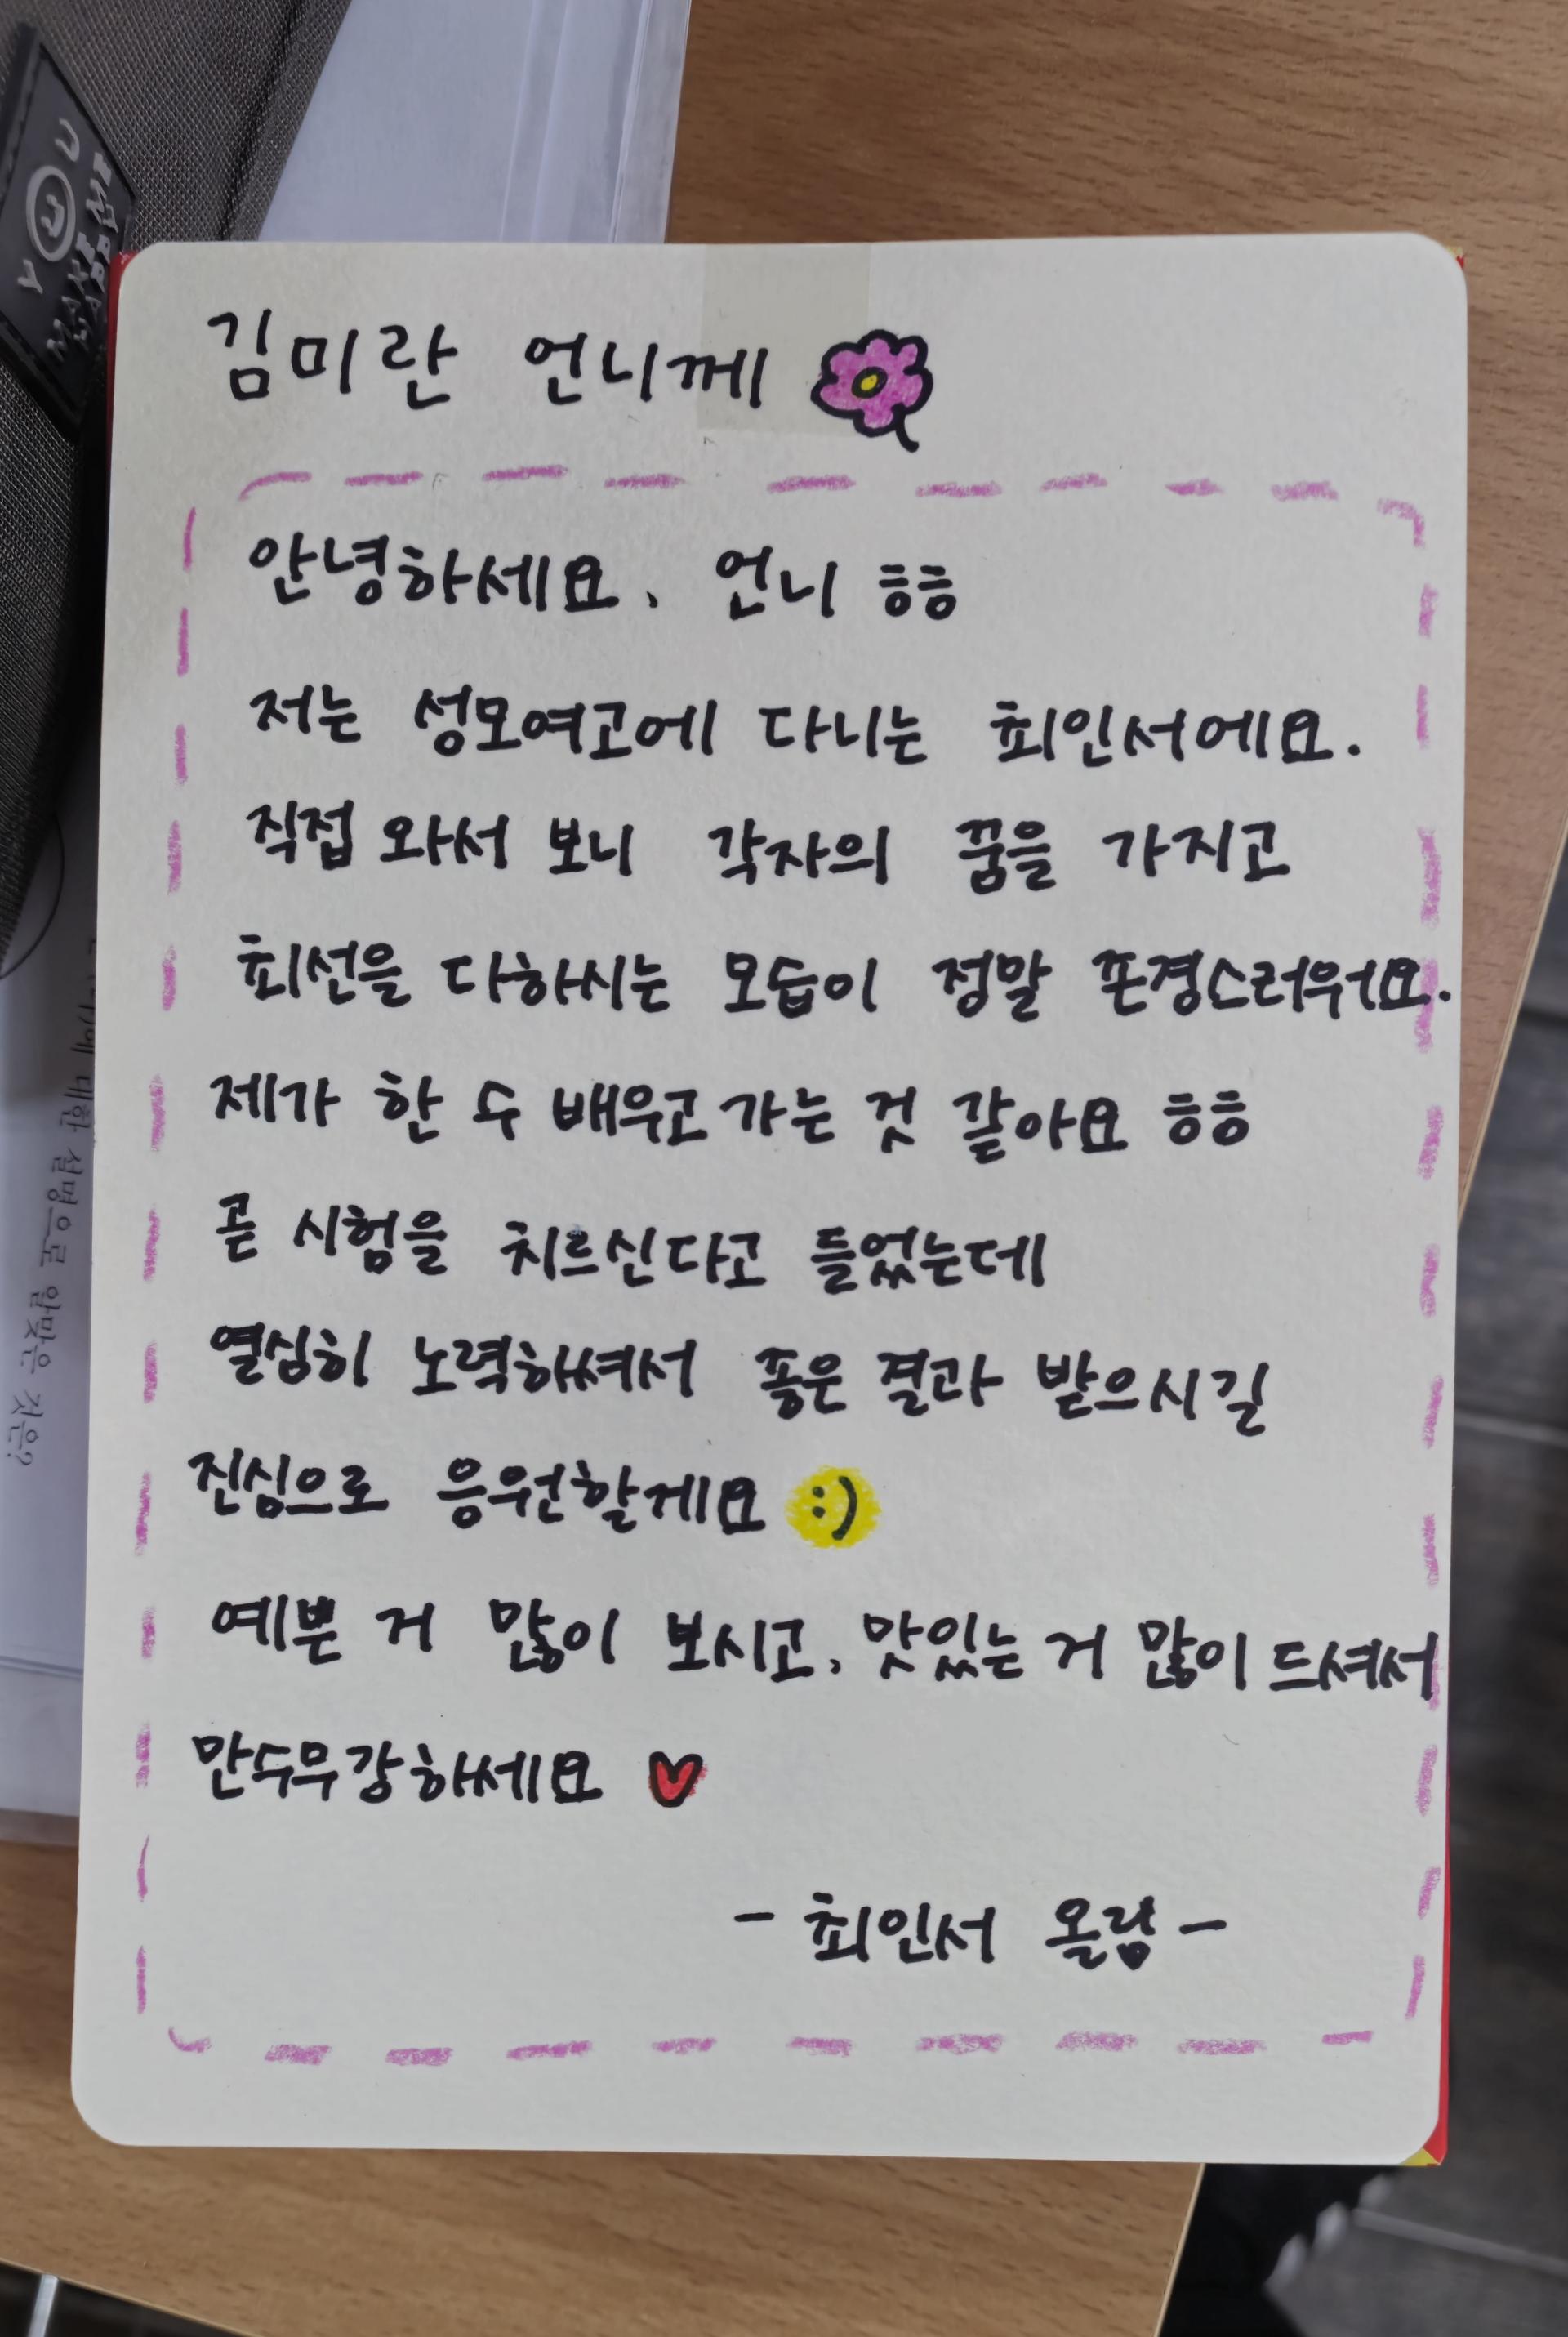 김미란 언니께
안녕하세요, 언니 ㅎㅎ
저는 성모여고에 다니는 최인서에요.
직접 와서 보니 각자의 꿈을 가지고
최선을 다하시는 모습이 정말 존경스러워요.
제가 한 수 배우고 가는 것 같아요 ㅎㅎ
곧 시험을 치르신다고 들었는데
열심히 노력하셔서 좋은 결과 받으시길
진심으로 응원할게요 :)
예쁜 거 많이 보시고, 맛있는 거 많이 드셔서
만수무강하세요 ♥
- 최인서 올림 -
대한 설명으로 알맞은 것은?